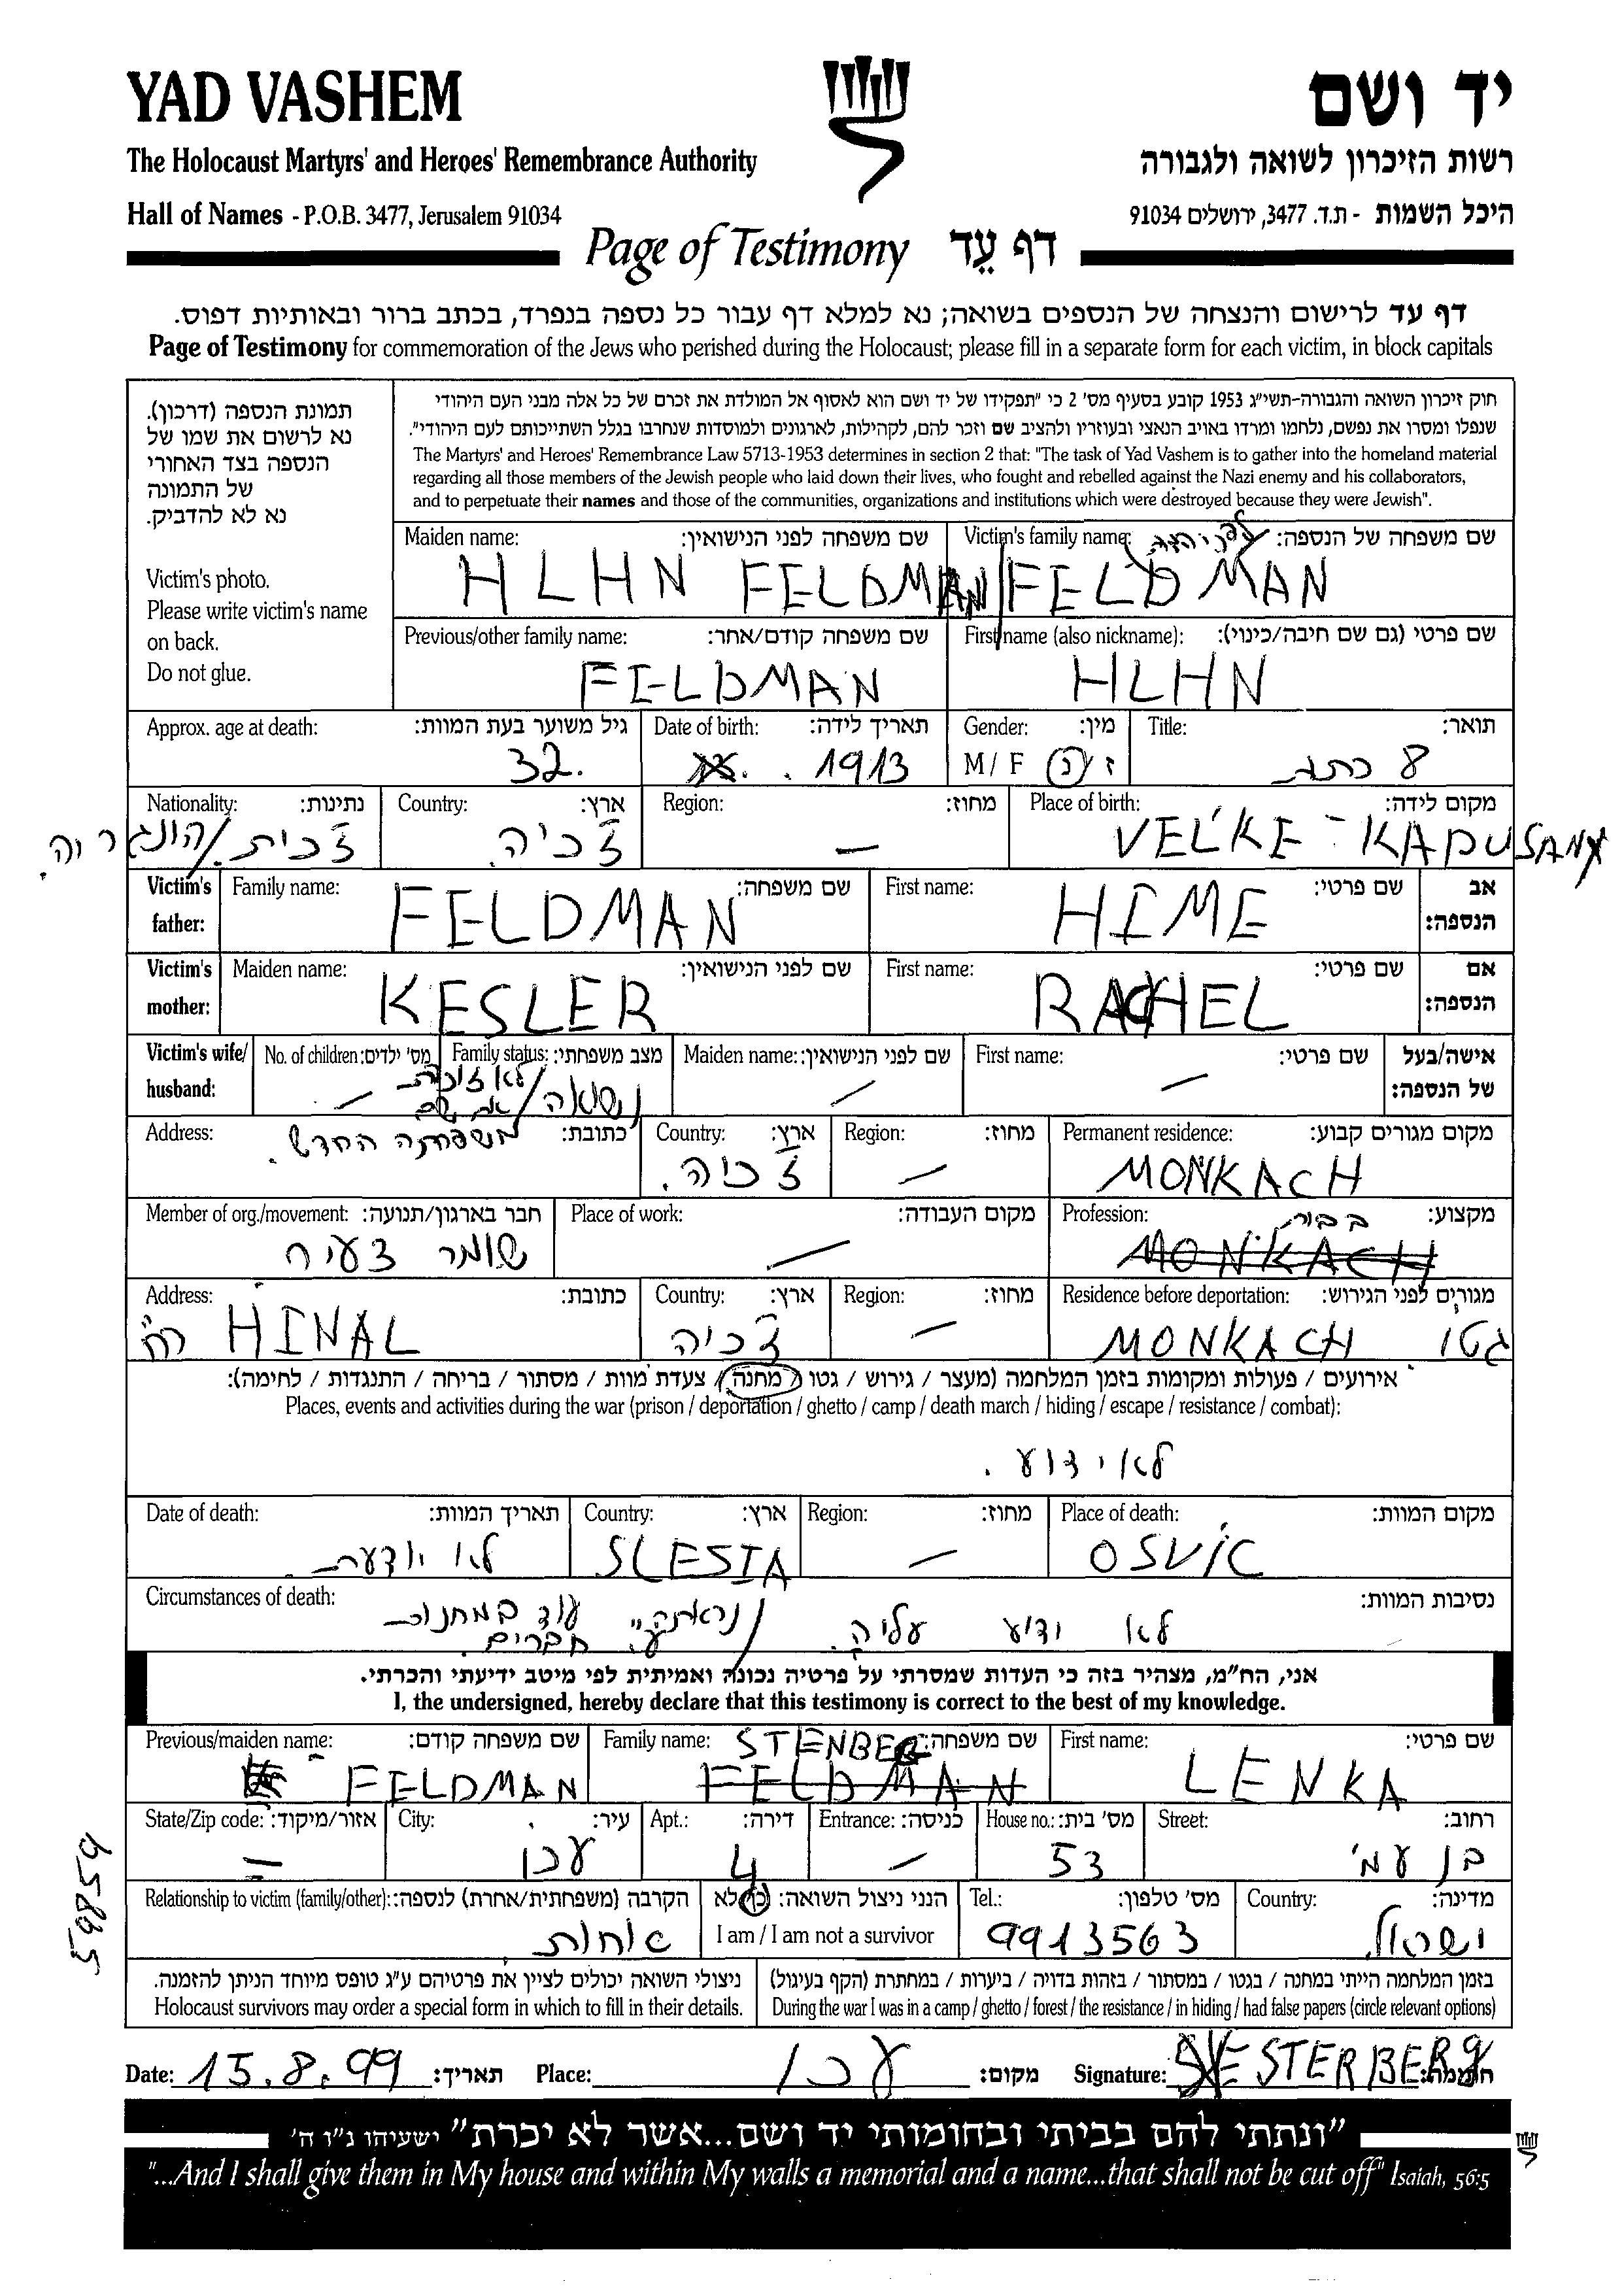 YAD VASHEM יד ושם
The Holocaust Martyrs' and Heroes' Remembrance Authority רשות הזיכרון לשואה ולגבורה
Hall of Names - P.O.B. 3477, Jerusalem 91034 היכל השמות - ת.ד. 3477, ירושלים 91034
Page of Testimony דף עֵד
דף עד לרישום והנצחה של הנספים בשואה; נא למלא דף עבור כל נספה בנפרד, בכתב ברור ובאותיות דפוס.
Page of Testimony for commemoration of the Jews who perished during the Holocaust; please fill in a separate form for each victim, in block capitals
תמונת הנספה (דרכון).
נא לרשום את שמו של
הנספה בצד האחורי
של התמונה
נא לא להדביק.
Victim's photo.
Please write victim's name
on back.
Do not glue.
חוק זיכרון השואה והגבורה-תשי"ג 1953 קובע בסעיף מס' 2 כי "תפקידו של יד ושם הוא לאסוף אל המולדת את זכרם של כל אלה מבני העם היהודי
שנפלו ומסרו את נפשם, נלחמו ומרדו באויב הנאצי ובעוזריו ולהציב שם וזכר להם, לקהילות, לארגונים ולמוסדות שנחרבו בגלל השתייכותם לעם היהודי".
The Martyrs' and Heroes' Remembrance Law 5713-1953 determines in section 2 that: "The task of Yad Vashem is to gather into the homeland material
regarding all those members of the Jewish people who laid down their lives, who fought and rebelled against the Nazi enemy and his collaborators,
and to perpetuate their names and those of the communities, organizations and institutions which were destroyed because they were Jewish".
Maiden name: שם משפחה לפני הנישואין: Victim's family name: שם משפחה של הנספה:
HLHN FELDMAN FELDMAN
Previous/other family name: שם משפחה קודם/אחר: First name (also nickname): שם פרטי (גם שם חיבה/כינוי):
FELDMAN HLHN
Approx. age at death: גיל משוער בעת המוות: Date of birth: תאריך לידה: Gender: מין: Title: תואר:
32. 1913 M / F ז / נ 8 כתב
Nationality: נתינות: Country: ארץ: Region: מחוז: Place of birth: מקום לידה:
צ'כית./הונגריה. צ'כיה. — VELKE - KAPUSANY
Victim's father: Family name: שם משפחה: First name: שם פרטי: אב הנספה:
FELDMAN HIME
Victim's mother: Maiden name: שם לפני הנישואין: First name: שם פרטי: אם הנספה:
KESLER RACHEL
Victim's wife/ husband: No. of children: מס' ילדים: Family status: מצב משפחתי: Maiden name: שם לפני הנישואין: First name: שם פרטי: אישה/בעל של הנספה:
— נשואה/לא זוכרת — —
את שם
משפחתה החדש.
Address: כתובת: Country: ארץ: Region: מחוז: Permanent residence: מקום מגורים קבוע:
צ'כיה. — MONKACH
Member of org./movement: חבר בארגון/תנועה: Place of work: מקום העבודה: Profession: מקצוע:
שומר צעיר — MONKACH
Address: כתובת: Country: ארץ: Region: מחוז: Residence before deportation: מגורים לפני הגירוש:
רח' HINAL צ'כיה — MONKACH גטו
אירועים / פעולות ומקומות בזמן המלחמה (מעצר / גירוש / גטו / מחנה / צעדת מוות / מסתור / בריחה / התנגדות / לחימה):
Places, events and activities during the war (prison / deportation / ghetto / camp / death march / hiding / escape / resistance / combat):
לא ידוע.
Date of death: תאריך המוות: Country: ארץ: Region: מחוז: Place of death: מקום המוות:
לא יודעת. SLESIA — OSVIC
Circumstances of death: נסיבות המוות:
לא ידוע עליה. / נראתה עוד במחנות
ע"י חברים.
אני, הח"מ, מצהיר בזה כי העדות שמסרתי על פרטיה נכונה ואמיתית לפי מיטב ידיעתי והכרתי.
I, the undersigned, hereby declare that this testimony is correct to the best of my knowledge.
Previous/maiden name: שם משפחה קודם: Family name: שם משפחה: First name: שם פרטי:
FELDMAN STENBERG FELDMAN LENKA
State/Zip code: אזור/מיקוד: City: עיר: Apt.: דירה: Entrance: כניסה: House no.: מס' בית: Street: רחוב:
— עכו 4 — 53 בן עמי
59859
Relationship to victim (family/other): הקרבה (משפחתית/אחרת) לנספה: הנני ניצול השואה: כן/לא Tel.: מס' טלפון: Country: מדינה:
אחות I am / I am not a survivor 9913563 ישראל
ניצולי השואה יכולים לציין את פרטיהם ע"ג טופס מיוחד הניתן להזמנה. בזמן המלחמה הייתי במחנה / בגטו / במסתור / בזהות בדויה / ביערות / במחתרת (הקף בעיגול)
Holocaust survivors may order a special form in which to fill in their details. During the war I was in a camp / ghetto / forest / the resistance / in hiding / had false papers (circle relevant options)
Date: 15.8.99 תאריך: Place: עכו מקום: Signature: STERBERG חתימה:
"ונתתי להם בביתי ובחומותי יד ושם...אשר לא יכרת" ישעיהו נ"ו ה'
"...And I shall give them in My house and within My walls a memorial and a name...that shall not be cut off" Isaiah, 56:5